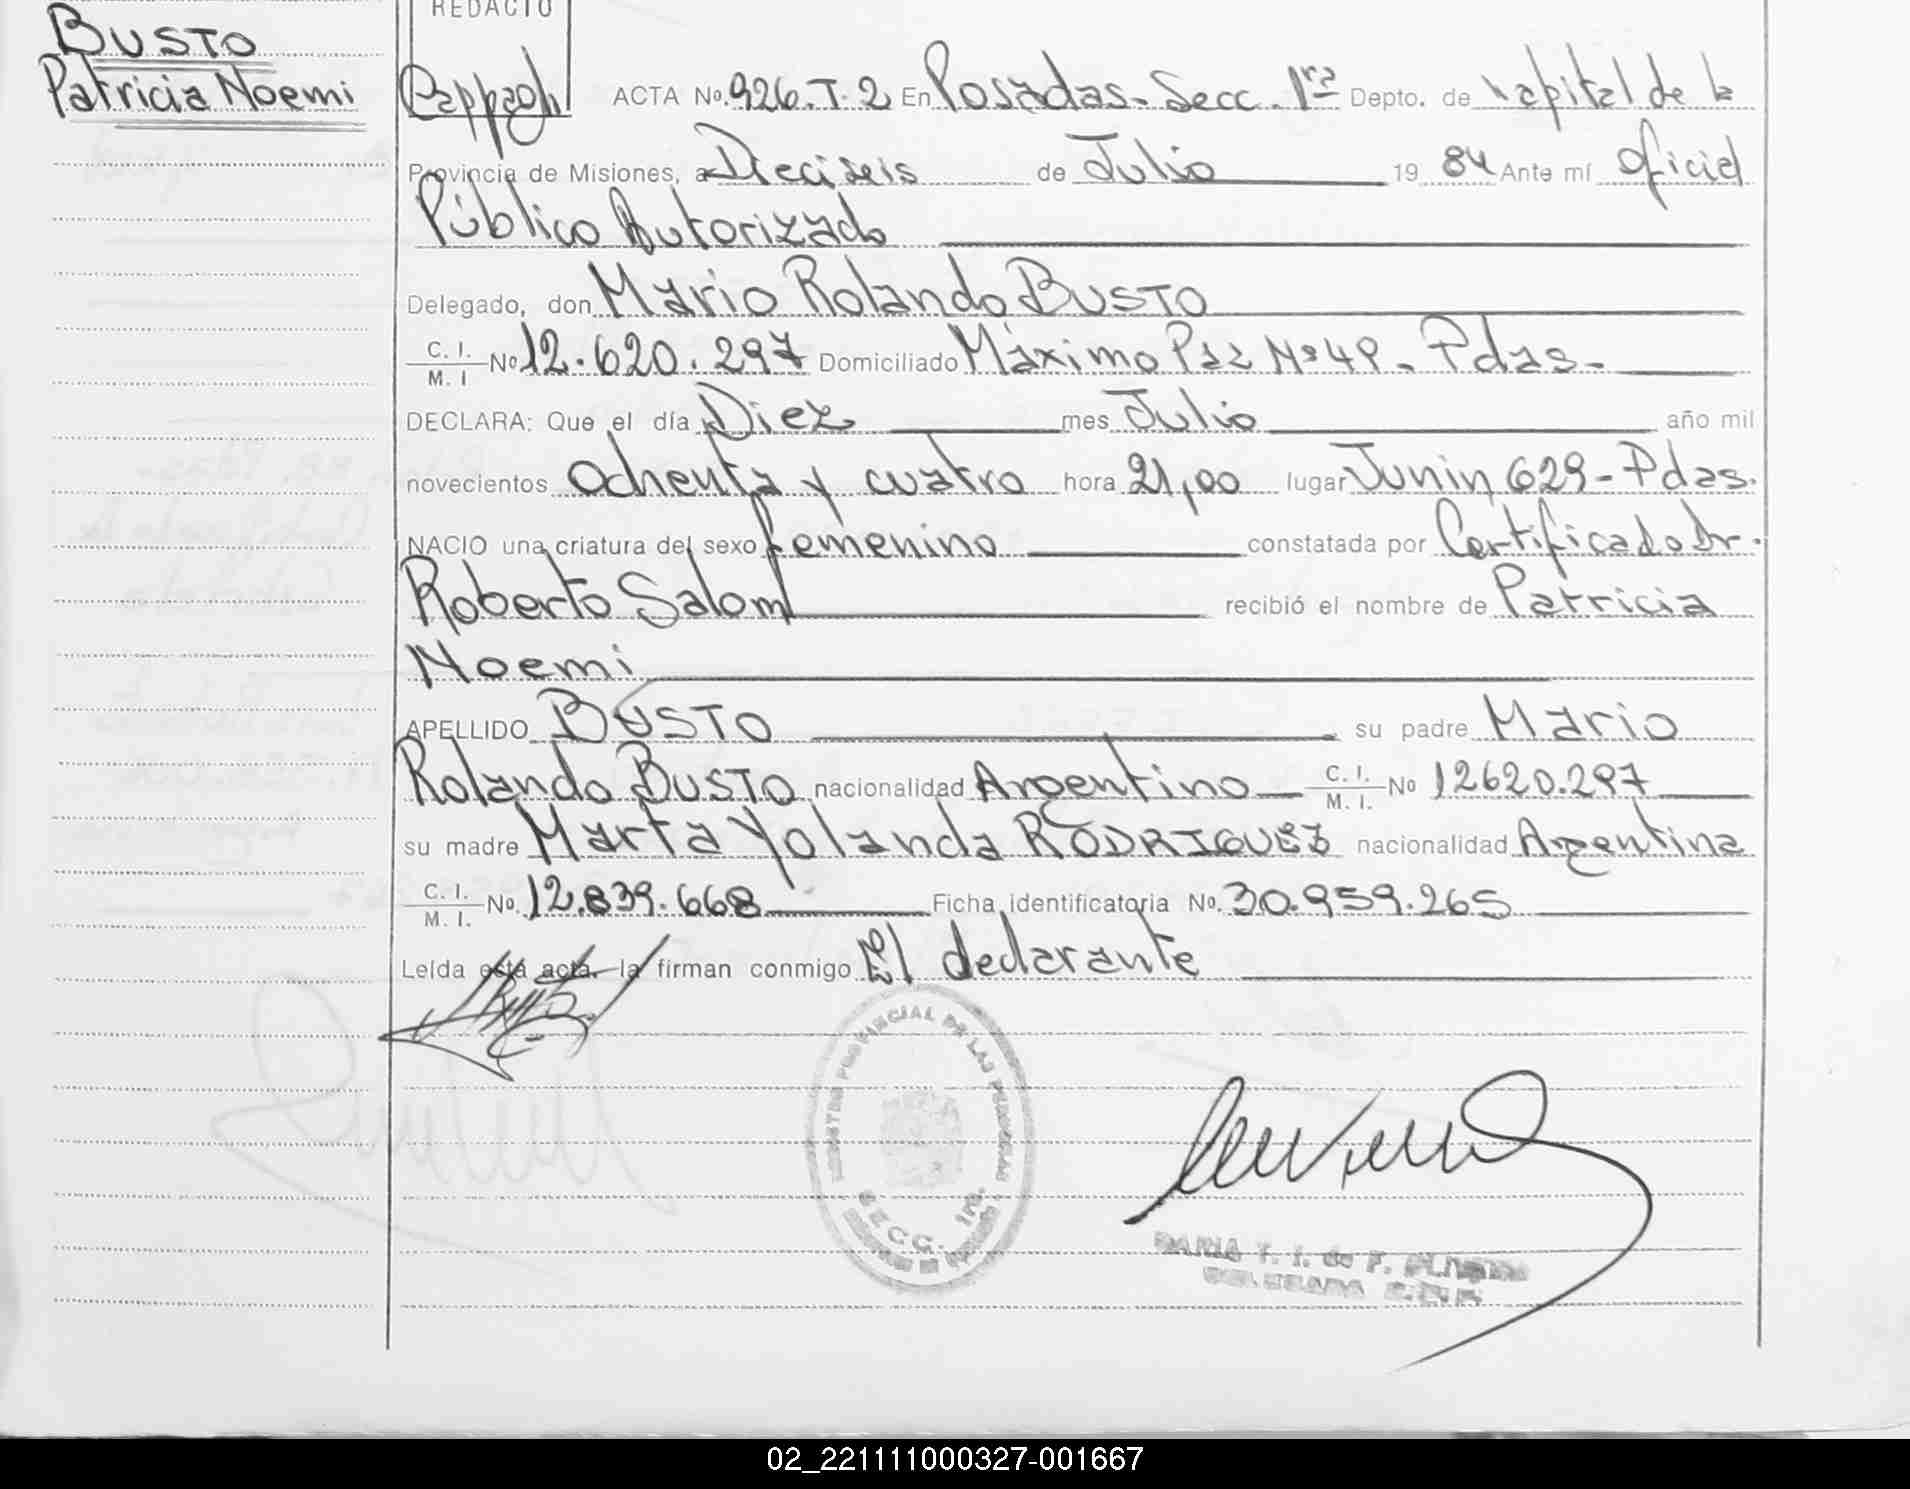 BUSTO
Patricia Noemi
REDACTO
ACTA No. 926. T. 2 En Posadas - Secc. 1ra Depto. de Capital de la
Provincia de Misiones, a Dieciseis de Julio 19 84 Ante mí Oficial
Público Autorizado
Delegado, don Mario Rolando BUSTO
C. I.
M. I No 12.620.297 Domiciliado Máximo Paz Nº 49 - Pdas -
DECLARA: Que el día Diez mes Julio año mil
novecientos Ochenta y cuatro hora 21,00 lugar Junin 629 - Pdas.
NACIO una criatura del sexo femenino constatada por Certificado Dr.
Roberto Salom recibió el nombre de Patricia
Noemi
APELLIDO BUSTO su padre Mario
Rolando BUSTO nacionalidad Argentino C. I.
M. I. No 12620.297
su madre Marta Yolanda RODRIGUEZ nacionalidad Argentina
C. I.
M. I. No. 12.839.668 Ficha identificatoria No. 30.959.265
Leída esta acta, la firman conmigo El declarante
REGISTRO PROVINCIAL DE LAS PERSONAS
SECC. 1ra.
02_221111000327-001667